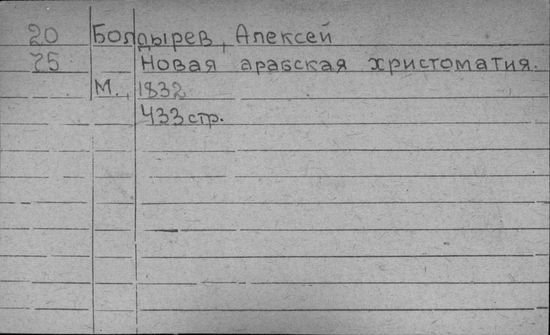 20 Болдырев, Алексей
75 Новая арабская христоматия.
М., 1832
433 стр.